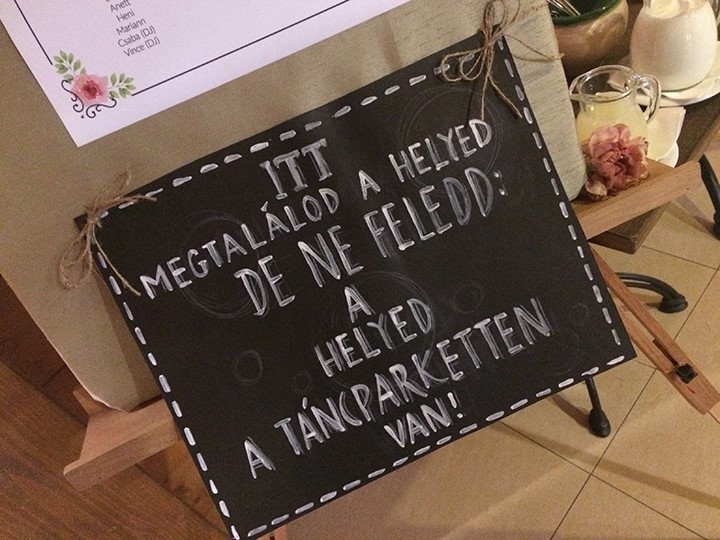 Anett
Heni
Mariann
Csaba (DJ)
Vince (DJ)
ITT
MEGTALÁLOD A HELYED
DE NE FELEDD:
A
HELYED
A TÁNCPARKETTEN
VAN!